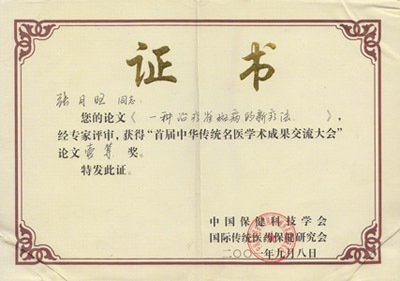 证书
张月旺 同志:
您的论文《一种治疗雀斑病的新疗法》,
经专家评审,获得“首届中华传统名医学术成果交流大会”
论文壹等奖。
特发此证。
中国保健科技学会
国际传统医药保健研究会
二〇〇一年九月八日